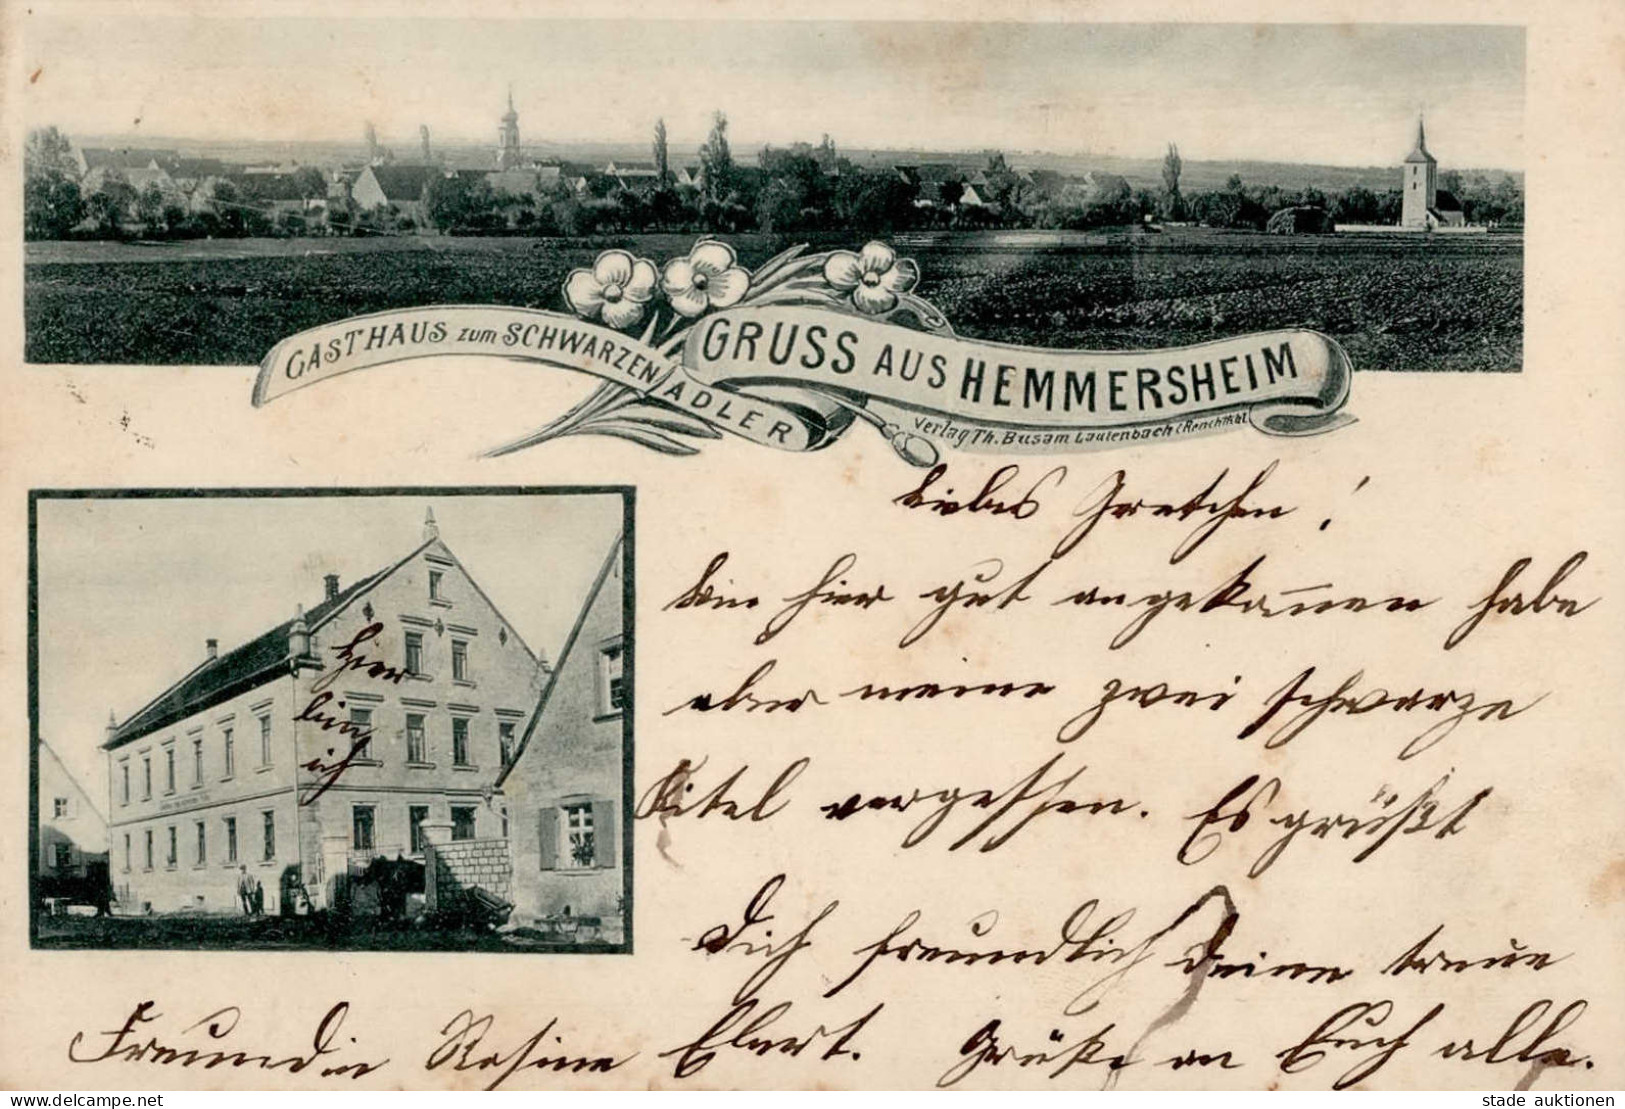 GASTHAUS zum SCHWARZEN ADLER
GRUSS AUS HEMMERSHEIM
Verlag Th. Busam Lautenbach (Renchthal)
Liebes Gretchen!
bin hier gut angekom̄en habe
aber meine zwei schwarze
Kitel vergessen. Es grüßt
Dich freundlich Deine treue
Freundin Rosine Ebert. Grüße an Euch alle.
Hier
bin
ich
delcampe.net
stade auktionen